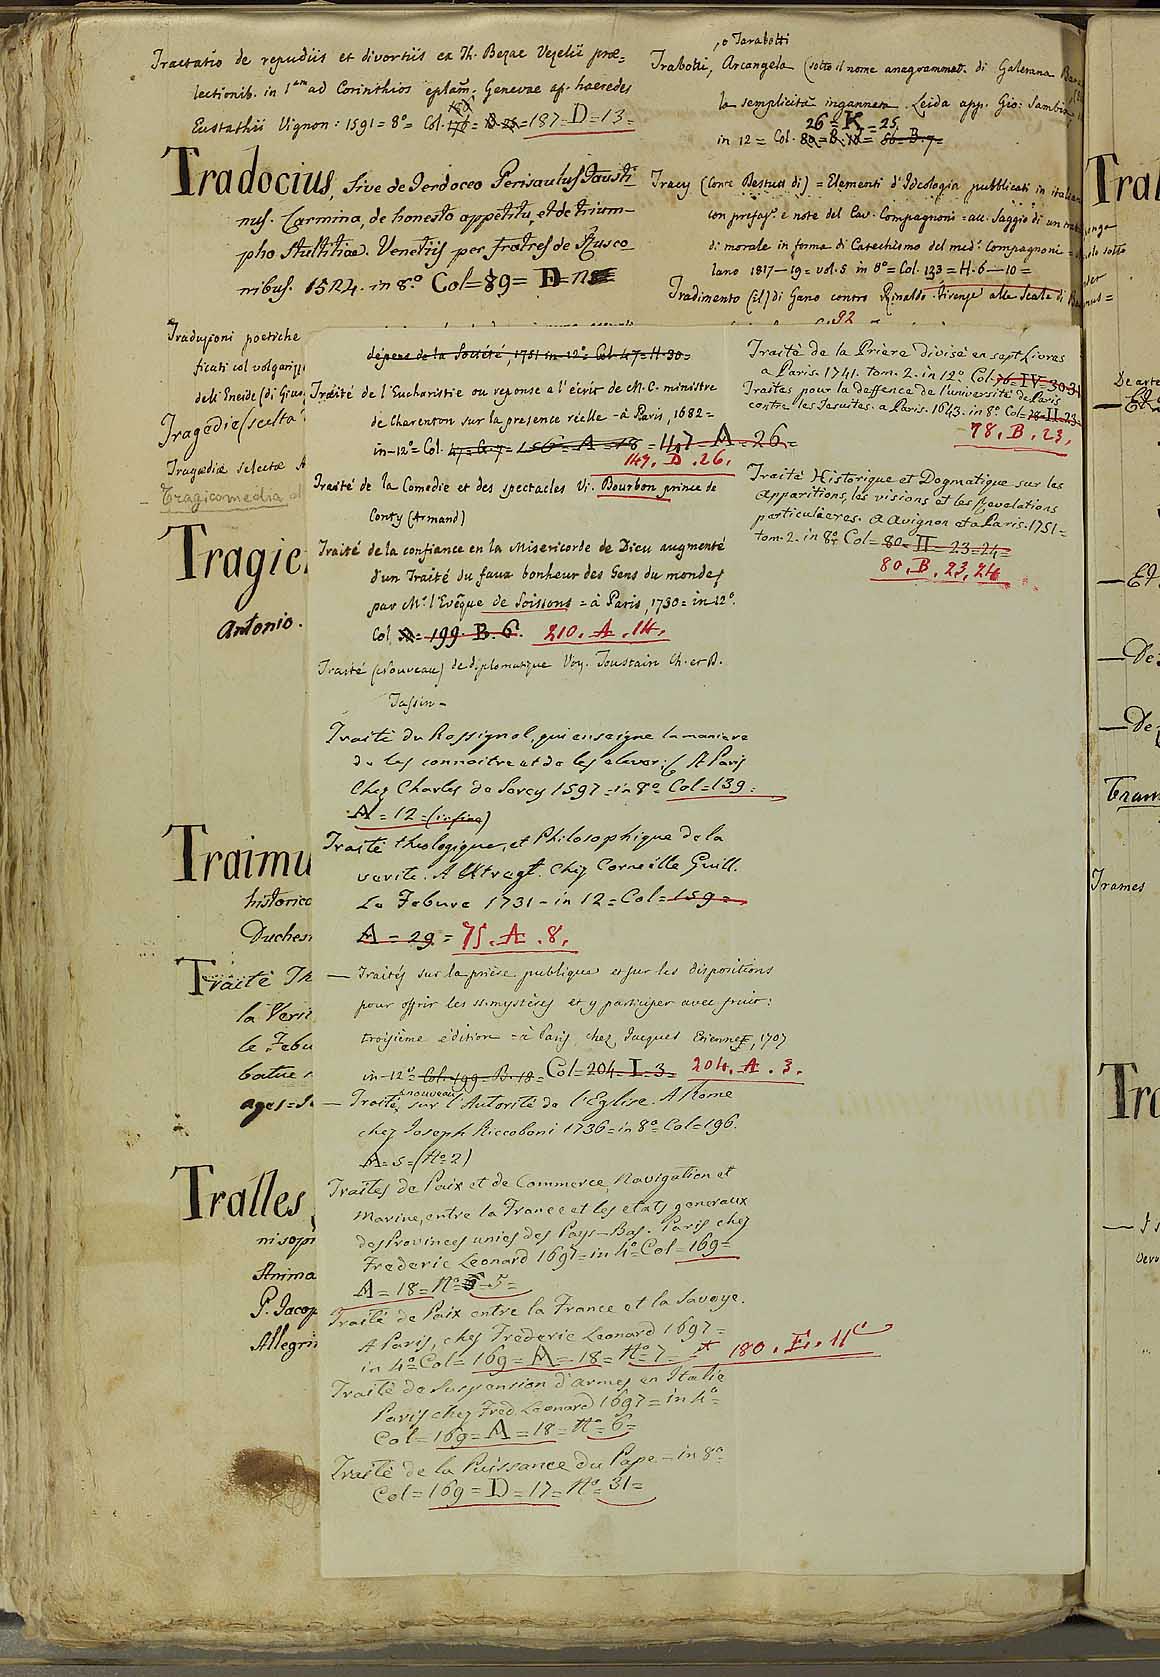 Tractatio de repudiis et divortiis ex Th. Bezae Vezelii præ=
lectionib. in 1am ad Corinthios eplam. Genevae ap. haeredes
Eustathii Vignon: 1591 = 8º = Col. =187=D=13=
Tradocius, sive de Ierdoceo Perisaulus Fausti=
nus. Carmina, de honesto appetitu, et de trium=
pho stultitiae. Venetiis per fratres de
nibus. 1524. in 8.º Col=89= D=
Traduzioni poetiche
ficati col volgarizz
dell'Eneide (di Giu
Tragedie (scelta
Tragœdiæ selectæ
Tragicomedia
Tragie
Antonio.
Traimu
historico
Duchesn
Traité Th
la Verit
le Febu
batue
ages=
Tralles,
Anima
P. Jacop
Allegrin
o Tarabotti
Trabotti, Arcangela (sotto il nome anagrammat. di Galerana
la semplicità ingannata. Leida app. Gio: Sambix
26=K=25
in 12 = Col. 80=B.10= 86=B.7=
Tracy (Conte Destutt di) = Elementi d'Ideologia pubblicati in italian
con prefaz. e note del Cav. Compagnoni = au. Saggio di un
di morale in forma di Catechismo del med.º Compagnoni =
lano 1817-19= vol. 5 in 8º= Col. 133=H.6-10=
Tradimento (il) di Gano contro Rinaldo. Firenze alle Scale di
92
dépens de la Société, 1751 in-12º Col. 47=H.30=
Traité de l'Eucharistie ou reponse a l'écrit de M.C. ministre
de Charenton sur la presence réelle - à Paris, 1682=
in-12º= Col. 47=A.7= 156=A=18 = 147=A=26=
147. D. 26.
Traité de la Comedie et des spectacles Vi. Bourbon prince de
Conty (Armand)
Traité de la confiance en la Misericorde de Dieu augmenté
d'un Traité du faux bonheur des Gens du monde,
par Mr l'Evêque de Soissons = à Paris, 1730= in-12º.
Col. = 199. B. 6. 210. A. 14.
Traité (Nouveau) de diplomatique Voy. Toustain Ch. et D.
Tassin-
Traité du Rossignol, qui enseigne la maniere
de les connoitre et de les elever: A Paris
Chez Charles de Sercy 1597=in 8º= Col=139=
A=12=(in fine)
Traité theologique, et Philosophique de la
verité. A Utregt. Chez Corneille Guill.
Le Febure 1731=in 12=Col=159=
A=29= 75. A. 8.
— Traités sur la prière publique et sur les dispositions
pour offrir les ss. mystères et y participer avec fruit:
troisième édition = à Paris, chez Jacques Etienne, 1707
in-12º= Col. 199=B.18= Col=204=I=3= 204. A. 3.
nouveau
— Traité sur l'Autorité de l'Eglise. A Rome
chez Joseph Riccoboni 1736=in 8º=Col=196.
A=5=(Nº=2)
Traités de Paix et de Commerce, Navigation et
Marine, entre la France et les etats generaux
des Provinces unies des Pays-Bas. Paris chez
Frederic Leonard 1697=in 4º Col=169=
A=18=Nº=5=
Traité de Paix entre la France et la Savoye.
A Paris, chez Frederic Leonard 1697=
in 4º Col=169=A=18=Nº=7= 180. E. 11
Traité de Suspension d'armes en Italie
Paris chez Fred. Leonard 1697=in 4º=
Col=169=A=18=Nº=6=
Traité de la Puissance du Pape=in 8º
Col=169=D=17=Nº=31=
Traité de la Prière divisé en sept Livres
a Paris. 1741. tom. 2. in 12º Col. 76=IV=30.31
Traités pour la deffence de l'université de Paris
contre les Jesuites. a Paris. 1643. in 8º. Col=78=II=23=
78. B. 23.
Traité Historique et Dogmatique sur les
apparitions, les visions et les Revelations
particulieres. a Avignon et a Paris. 1751=
tom. 2. in 8º Col=80=II=23=24=
80. B. 23, 24
Tral
De arte
— Ed
— De
— De
Tram
Trames
Tra